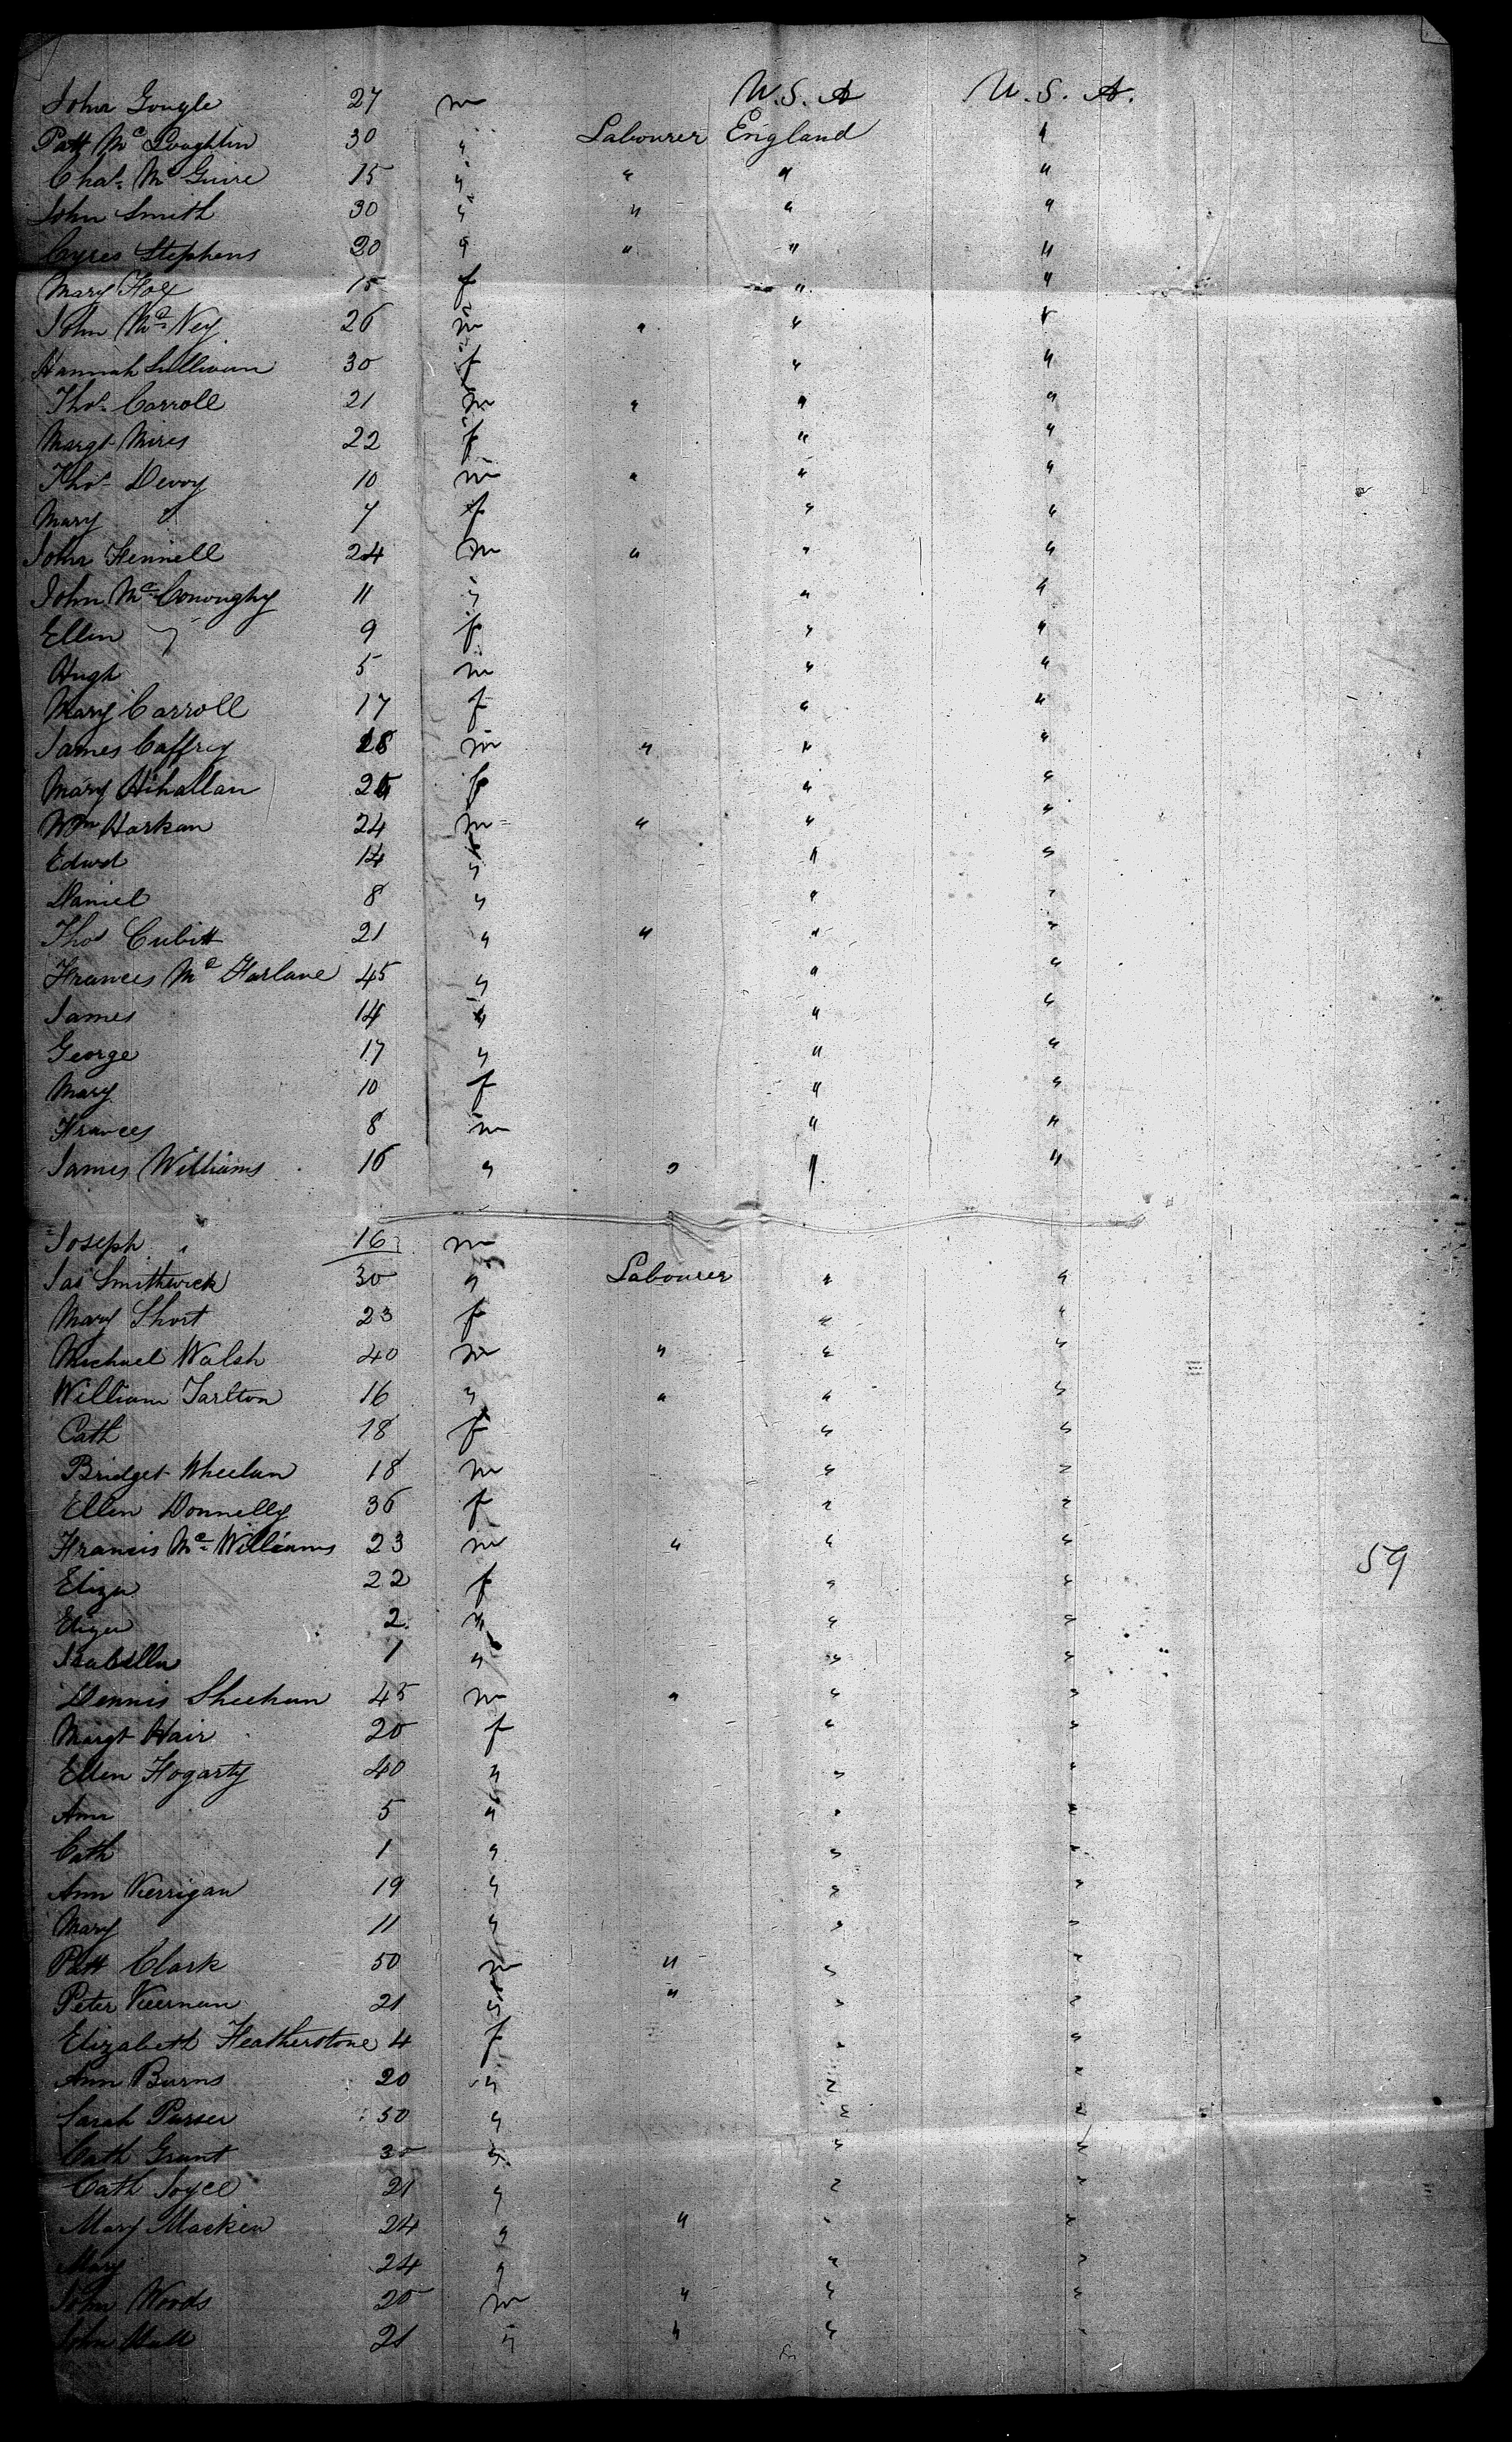 John Gougle 27 m U.S.A U.S.A.
Patt Mc Loughlin 30 " Labourer England "
Chas. Mc Guire 15 " " " "
John Smith 30 " " " "
Cyres Stephens 20 " " " "
Mary Foly 15 f " "
John Mc Vey 26 m " " "
Hannah Sullivan 30 f " "
Thos. Carroll 21 m " " "
Margt Mires 22 f " "
Thos. Devoy 10 m " " "
Mary " 7 f " "
John Fennell 24 m " " "
John Mc Conoughy 11 " " "
Ellen " 9 f " "
Hugh 5 m " "
Mary Carroll 17 f " "
James Caffrey 28 m " " "
Mary Hihallan 25 f " "
Wm Harkan 24 m " " "
Edwd 14 " " "
Daniel 8 " " "
Thos Cubitt 21 " " " "
Frances Mc Farlane 45 " " "
James 14 " " "
George 17 " " "
Mary 10 f " "
Frances 8 m " "
James Williams 16 " " " "
Joseph " 16 m
Jas Smithwick 30 " Labourer " "
Mary Short 23 f " "
Michael Walsh 40 m " " "
William Tarlton 16 " " " "
Cath 18 f " "
Bridget Wheelan 18 m " "
Ellen Donnelly 36 f " "
Francis Mc Williams 23 m " " "
59
Eliza 22 f " "
Eliza 2 " " "
Isabella 1 " " "
Dennis Sheehan 45 m " " "
Margt Hair 20 f " "
Ellen Fogarty 40 " " "
Ann 5 " " "
Cath 1 " " "
Ann Kerrigan 19 " " "
Mary 11 " " "
Patt Clark 50 m " " "
Peter Keernan 21 " " " "
Elizabeth Featherstone 4 f " "
Ann Burns 20 " " "
Sarah Purser 50 " " "
Cath Grant 30 " " "
Cath Joyce 21 " " "
Mary Macken 24 " " " "
Mary 24 " " "
John Woods 20 m " " "
John 21 " " "